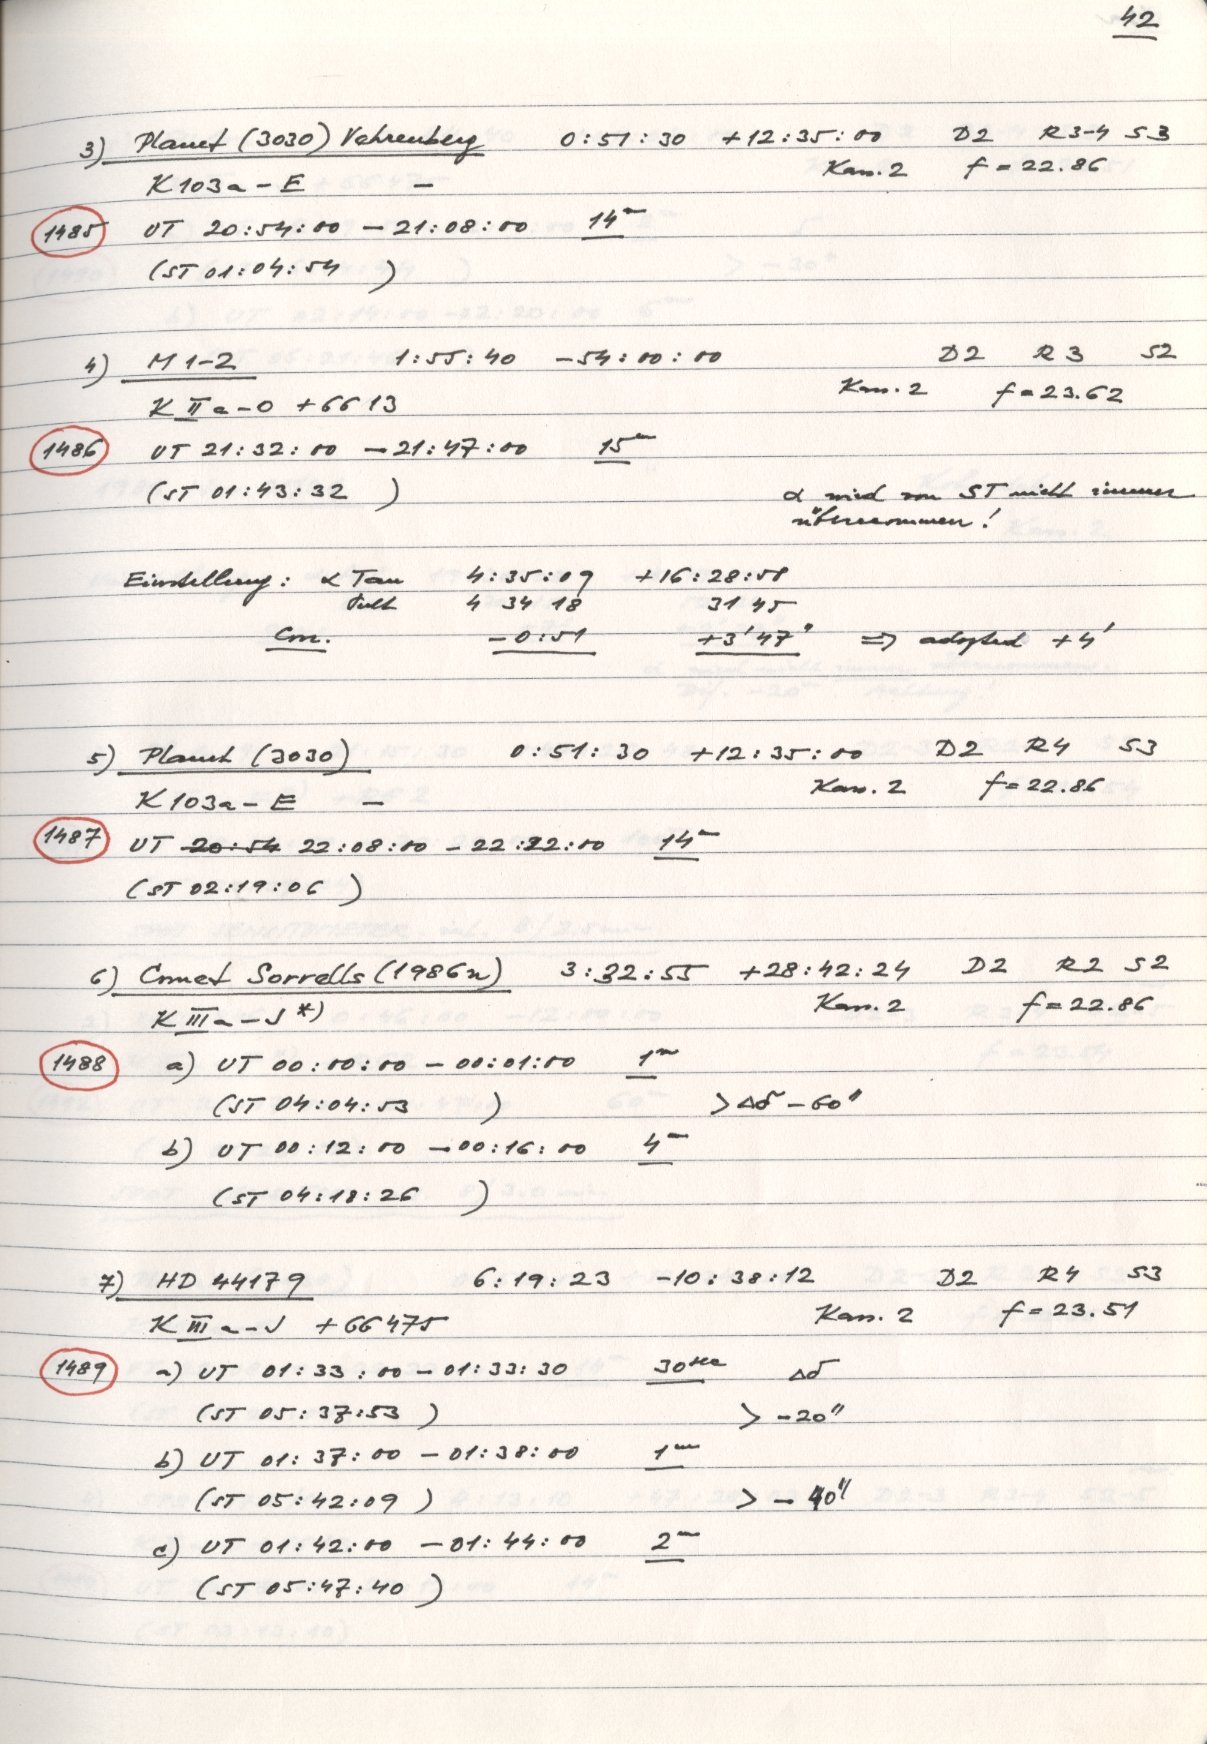 42
3) Planet (3030) Vehrenberg 0:51:30 +12:35:00 D2 R3-4 S3
K 103a-E — Kam. 2 f = 22.86
1485 UT 20:54:00 - 21:08:00 14m
(ST 01:04:54 )
4) M 1-2 1:55:40 -54:00:00 D2 R3 S2
K IIa-O +GG 13 Kam. 2 f = 23.62
1486 UT 21:32:00 - 21:47:00 15m
(ST 01:43:32 )
α wird von ST nicht immer
übernommen!
Einstellung: α Tau 4:35:09 +16:28:58
Pult 4 34 18 31 45
Corr. -0:51 +3'47" => adopted +4'
5) Planet (3030) 0:51:30 +12:35:00 D2 R4 S3
K 103a-E — Kam. 2 f = 22.86
1487 UT 20:54 22:08:00 - 22:22:00 14m
(ST 02:19:06 )
6) Comet Sorrells (1986n) 3:32:55 +28:42:24 D2 R2 S2
K IIIa-J *) Kam. 2 f = 22.86
1488 a) UT 00:00:00 - 00:01:00 1m
(ST 04:04:53 ) > Δδ -60"
b) UT 00:12:00 - 00:16:00 4m
(ST 04:18:26 )
7) HD 44179 6:19:23 -10:38:12 D2 R4 S3
K IIIa-J +GG 475 Kam. 2 f = 23.51
1489 a) UT 01:33:00 - 01:33:30 30sec Δδ
(ST 05:37:53 ) > -20"
b) UT 01:37:00 - 01:38:00 1m
(ST 05:42:09 ) > -40"
c) UT 01:42:00 - 01:44:00 2m
(ST 05:47:40 )